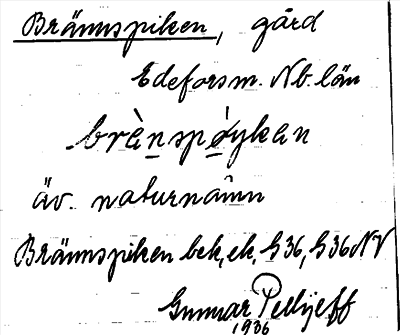 Brännspiken, gård
Edeforsm. Nb. län
brànspóyken
äv. naturnamn
Brännspiken bek, ek, G36, G36NV
Gunnar Pellijeff
1936